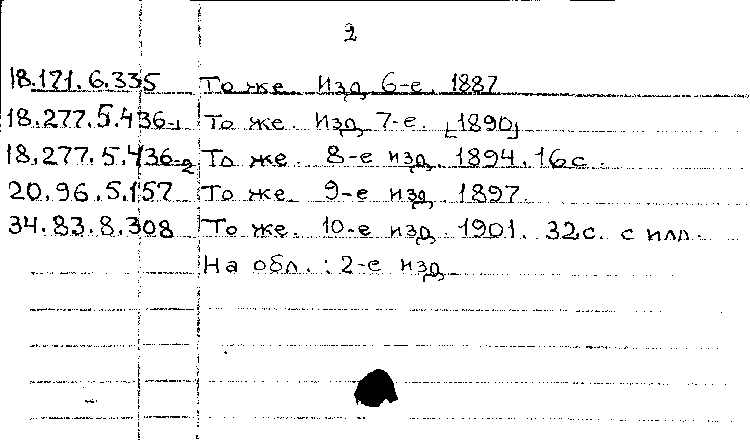 2
18.171.6.335 То же. Изд. 6-е. 1887
18.277.5.436-1 То же. Изд. 7-е. [1890]
18.277.5.436-2 То же. 8-е изд. 1894. 16с.
20.96.5.157 То же. 9-е изд. 1897.
34.83.8.308 То же. 10-е изд. 1901. 32с. с илл.
На обл.: 2-е изд.